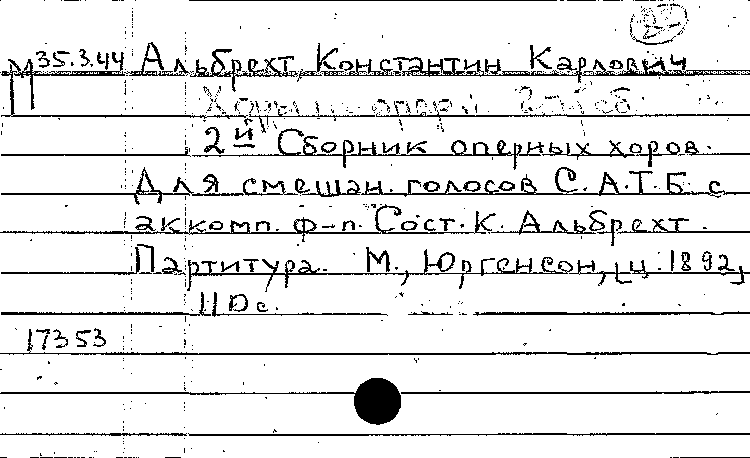 М 35.3.44 Альбрехт, Константин Карлович
Хоры из опер
2й Сборник оперных хоров.
Для смешан. голосов С.А.Т.Б. с
аккомп. ф-п. Сост. К. Альбрехт.
Партитура. М., Юргенсон, [ц. 1892]
110 с.
17353